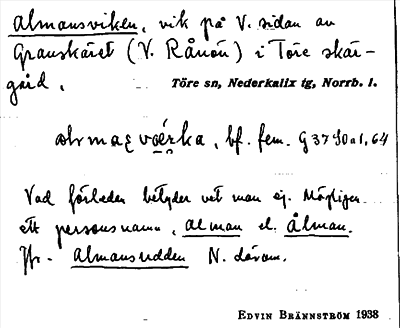 Almansviken, vik på V. sidan av
Granskäret (V. Rånön) i Töre skär-
gård.
Töre sn, Nederkalix tg, Norrb. l.
bf. fem. G 37
Vad förleden betyder vet man ej. Möjligen
ett personnamn, Alman el. Ålman.
Jfr. Almansudden N. därom.
EDVIN BRÄNNSTRÖM 1938